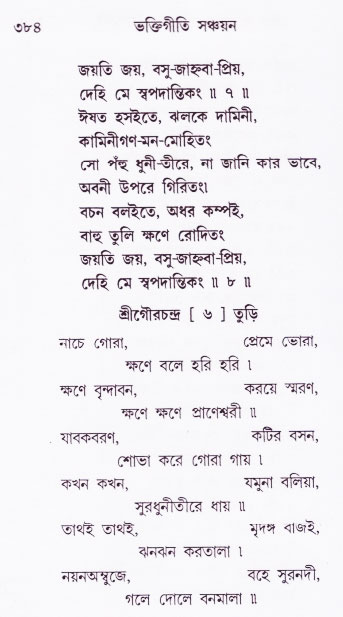 ৩৮৪ ভক্তিগীতি সঞ্চয়ন
জয়তি জয়, বসু-জাহ্নবা-প্রিয়,
দেহি মে স্বপদান্তিকং ॥ ৭ ॥
ঈষত হসইতে, ঝলকে দামিনী,
কামিনীগণ-মন-মোহিতং
সো পঁহু ধুনী-তীরে, না জানি কার ভাবে,
অবনী উপরে গিরিতং।
বচন বলইতে, অধর কম্পই,
বাহু তুলি ক্ষণে রোদিতং
জয়তি জয়, বসু-জাহ্নবা-প্রিয়,
দেহি মে স্বপদান্তিকং ॥ ৮ ॥
শ্রীগৌরচন্দ্র [ ৬ ] তুড়ি
নাচে গোরা, প্রেমে ভোরা,
ক্ষণে বলে হরি হরি ।
ক্ষণে বৃন্দাবন, করয়ে স্মরণ,
ক্ষণে ক্ষণে প্রাণেশ্বরী ॥
যাবকবরণ, কটির বসন,
শোভা করে গোরা গায় ।
কখন কখন, যমুনা বলিয়া,
সুরধুনীতীরে ধায় ॥
তাথই তাথই, মৃদঙ্গ বাজই,
ঝনঝন করতালা ।
নয়নঅম্বুজে, বহে সুরনদী,
গলে দোলে বনমালা ॥